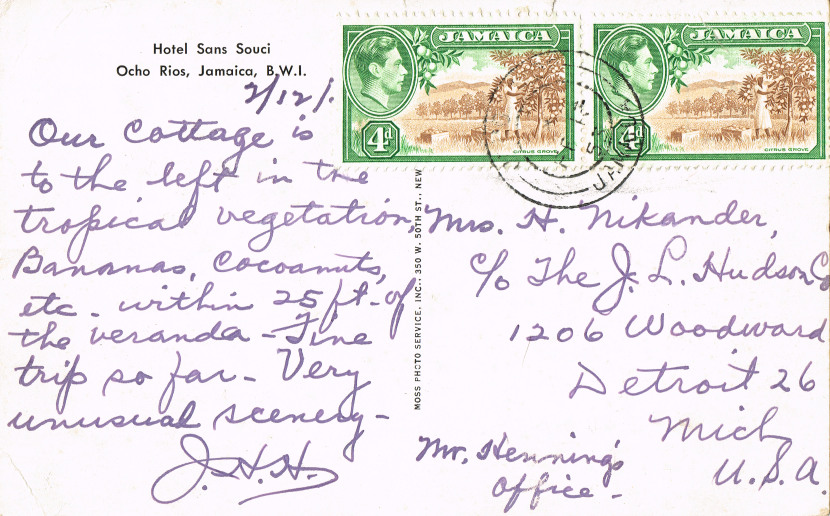 Hotel Sans Souci
Ocho Rios, Jamaica, B.W.I.
2/12/
Our Cottage is
to the left in the
tropical vegetation,
Bananas, Cocoanuts,
etc - within 25 ft - of
the veranda - Fine
trip so far - Very
unusual scenery -
J.H.H.
MOSS PHOTO SERVICE, INC., 350 W. 50TH ST., NEW
JAMAICA
4d
CITRUS GROVE
JAMAICA
4d
CITRUS GROVE
Mrs. H. Nikander,
c/o The J. L. Hudson Co
1206 Woodward
Detroit 26
Mich
U.S.A.
Mr. Henning's
Office -